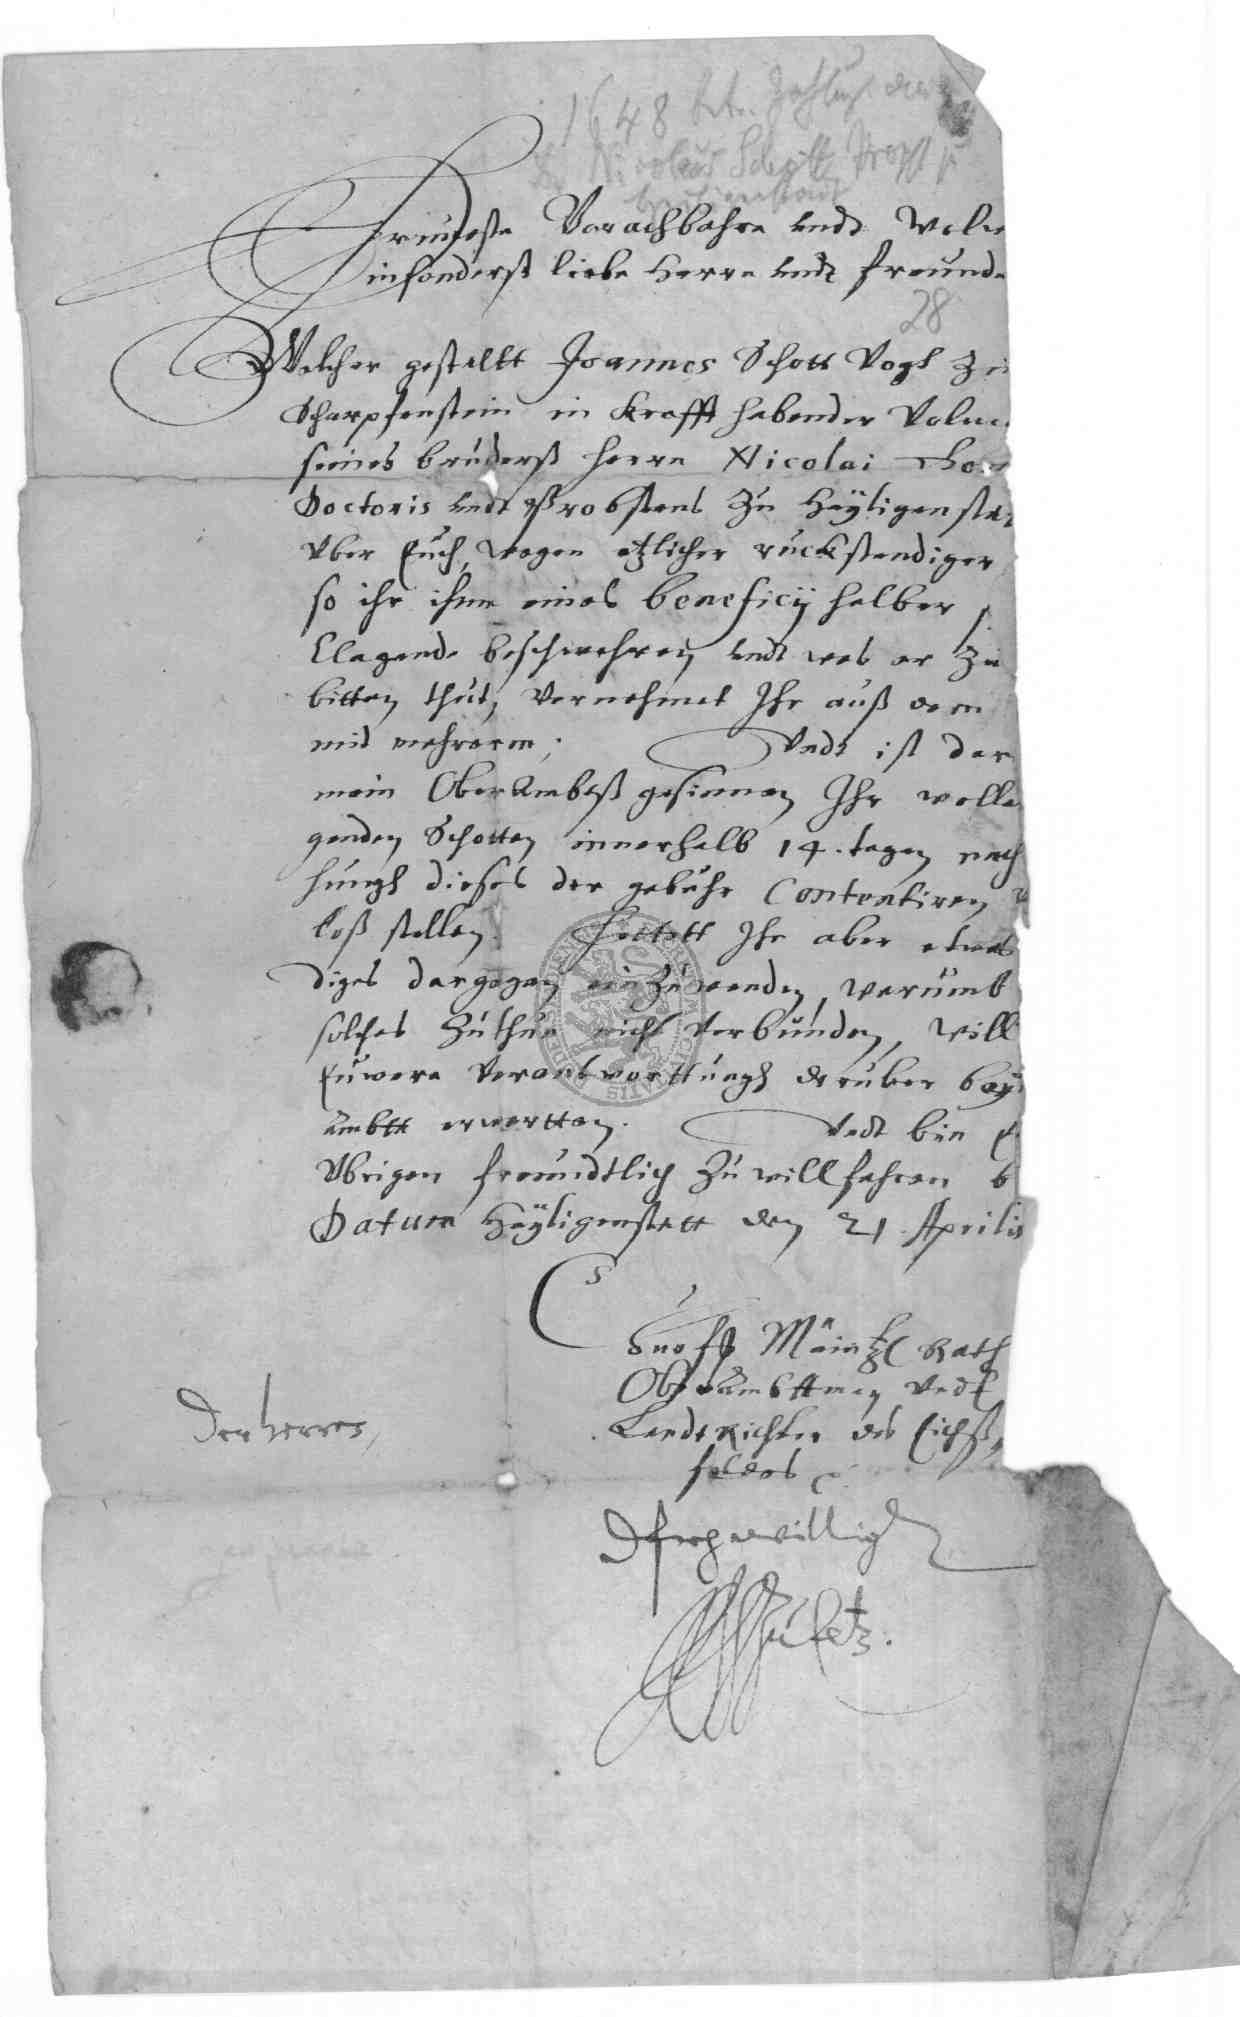 1648 betr. Zahlung des
Nicolaus Schott Propst zu
Heiligenstadt
Ernueste Vorachbahre vndt Wolw
insonderß liebe Herrn vndt freunde
28
Welcher gestaltt Joannes Schott Vogt Zu
Scharpfenstein in krafft habender Volm
seines bruderß Herrn Nicolai
Doctoris vndt Probstens Zu Heyligenstat
vber Euch, wegen etzlicher ruckstendiger
so ihr ihme eines beneficij halber
Clagende beschwehren vndt was er Zu
bitten thut, vernehmet Ihr auß dem
mit mehrerm; Vndt ist der
mein OberAmbtß gesinnen Ihr wolle
genden Schotten innerhalb 14. tagen nach
hungh dieses der gebuhr Contentiren
loß stellen. Hettett Ihr aber etwas
diges dargegen einZuwenden, warumb
solches Zuthun nicht verbunden, Will
Euwere Verantworttungh daruber bey
ambtt erwartten. Vndt bin E
Vbrigen freundtlich Zu willfahren b
Datum Heyligenstatt den 21 Aprilis
Churf Mäintzl Rath
Oberambttman Vndt
LandtRichter des Eichß,
feldes
Der herren,
Dienstwilliger